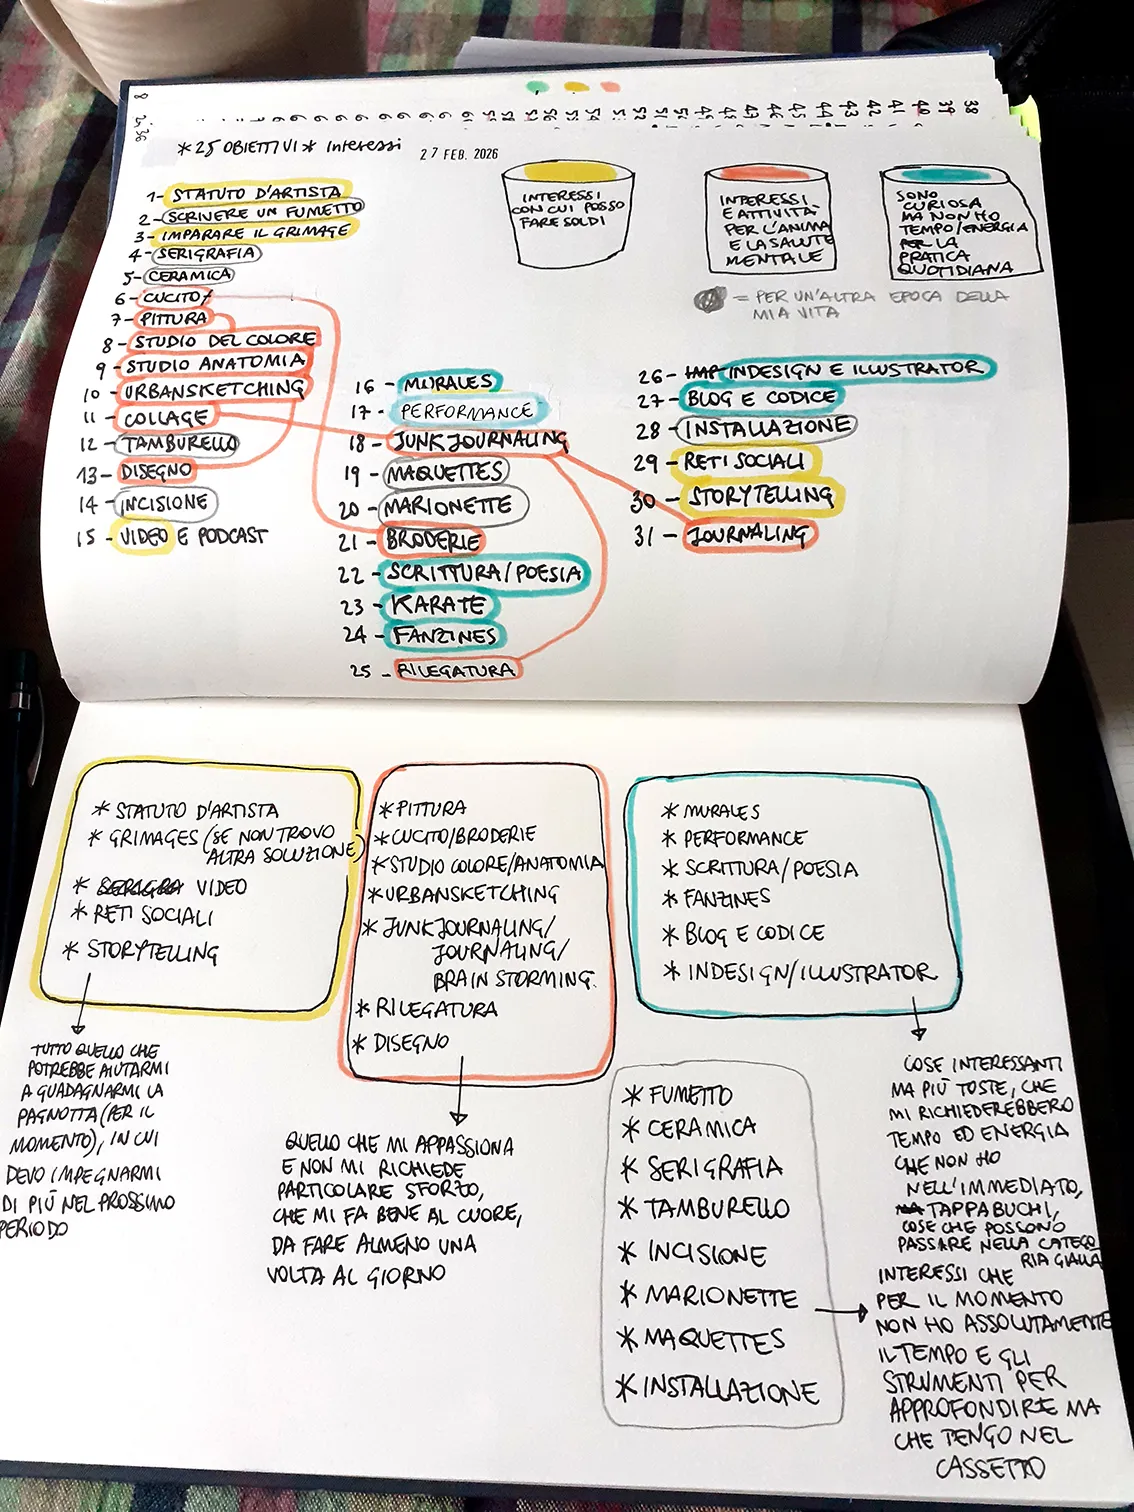 *25 OBIETTIVI* Interessi
27 FEB. 2026
1- STATUTO D'ARTISTA
2- SCRIVERE UN FUMETTO
3- IMPARARE IL GRIMAGE
4- SERIGRAFIA
5- CERAMICA
6- CUCITO
7- PITTURA
8- STUDIO DEL COLORE
9- STUDIO ANATOMIA
10- URBANSKETCHING
11- COLLAGE
12- TAMBURELLO
13- DISEGNO
14- INCISIONE
15- VIDEO E PODCAST
16- MURALES
17- PERFORMANCE
18- JUNKJOURNALING
19- MAQUETTES
20- MARIONETTE
21- BRODERIE
22- SCRITTURA/POESIA
23- KARATE
24- FANZINES
25- RILEGATURA
26- IMP INDESIGN E ILLUSTRATOR
27- BLOG E CODICE
28- INSTALLAZIONE
29- RETI SOCIALI
30- STORYTELLING
31- JOURNALING
INTERESSI
CON CUI POSSO
FARE SOLDI
INTERESSI
E ATTIVITÀ
PER L'ANIMA
E LA SALUTE
MENTALE
SONO
CURIOSA
MA NON HO
TEMPO/ENERGIA
PER LA
PRATICA
QUOTIDIANA
= PER UN'ALTRA EPOCA DELLA
MIA VITA
* STATUTO D'ARTISTA
* GRIMAGES (SE NON TROVO
ALTRA SOLUZIONE)
* SERIGRA VIDEO
* RETI SOCIALI
* STORYTELLING
TUTTO QUELLO CHE
POTREBBE AIUTARMI
A GUADAGNARMI LA
PAGNOTTA (PER IL
MOMENTO), IN CUI
DEVO IMPEGNARMI
DI PIÙ NEL PROSSIMO
PERIODO
* PITTURA
* CUCITO/BRODERIE
* STUDIO COLORE/ANATOMIA
* URBANSKETCHING
* JUNKJOURNALING/
JOURNALING/
BRAIN STORMING.
* RILEGATURA
* DISEGNO
QUELLO CHE MI APPASSIONA
E NON MI RICHIEDE
PARTICOLARE SFORZO,
CHE MI FA BENE AL CUORE,
DA FARE ALMENO UNA
VOLTA AL GIORNO
* MURALES
* PERFORMANCE
* SCRITTURA/POESIA
* FANZINES
* BLOG E CODICE
* INDESIGN/ILLUSTRATOR
COSE INTERESSANTI
MA PIÙ TOSTE, CHE
MI RICHIEDEREBBERO
TEMPO ED ENERGIA
CHE NON HO
NELL'IMMEDIATO,
TAPPABUCHI,
COSE CHE POSSONO
PASSARE NELLA CATEGO
RIA GIALLA
* FUMETTO
* CERAMICA
* SERIGRAFIA
* TAMBURELLO
* INCISIONE
* MARIONETTE
* MAQUETTES
* INSTALLAZIONE
INTERESSI CHE
PER IL MOMENTO
NON HO ASSOLUTAMENTE
IL TEMPO E GLI
STRUMENTI PER
APPROFONDIRE MA
CHE TENGO NEL
CASSETTO